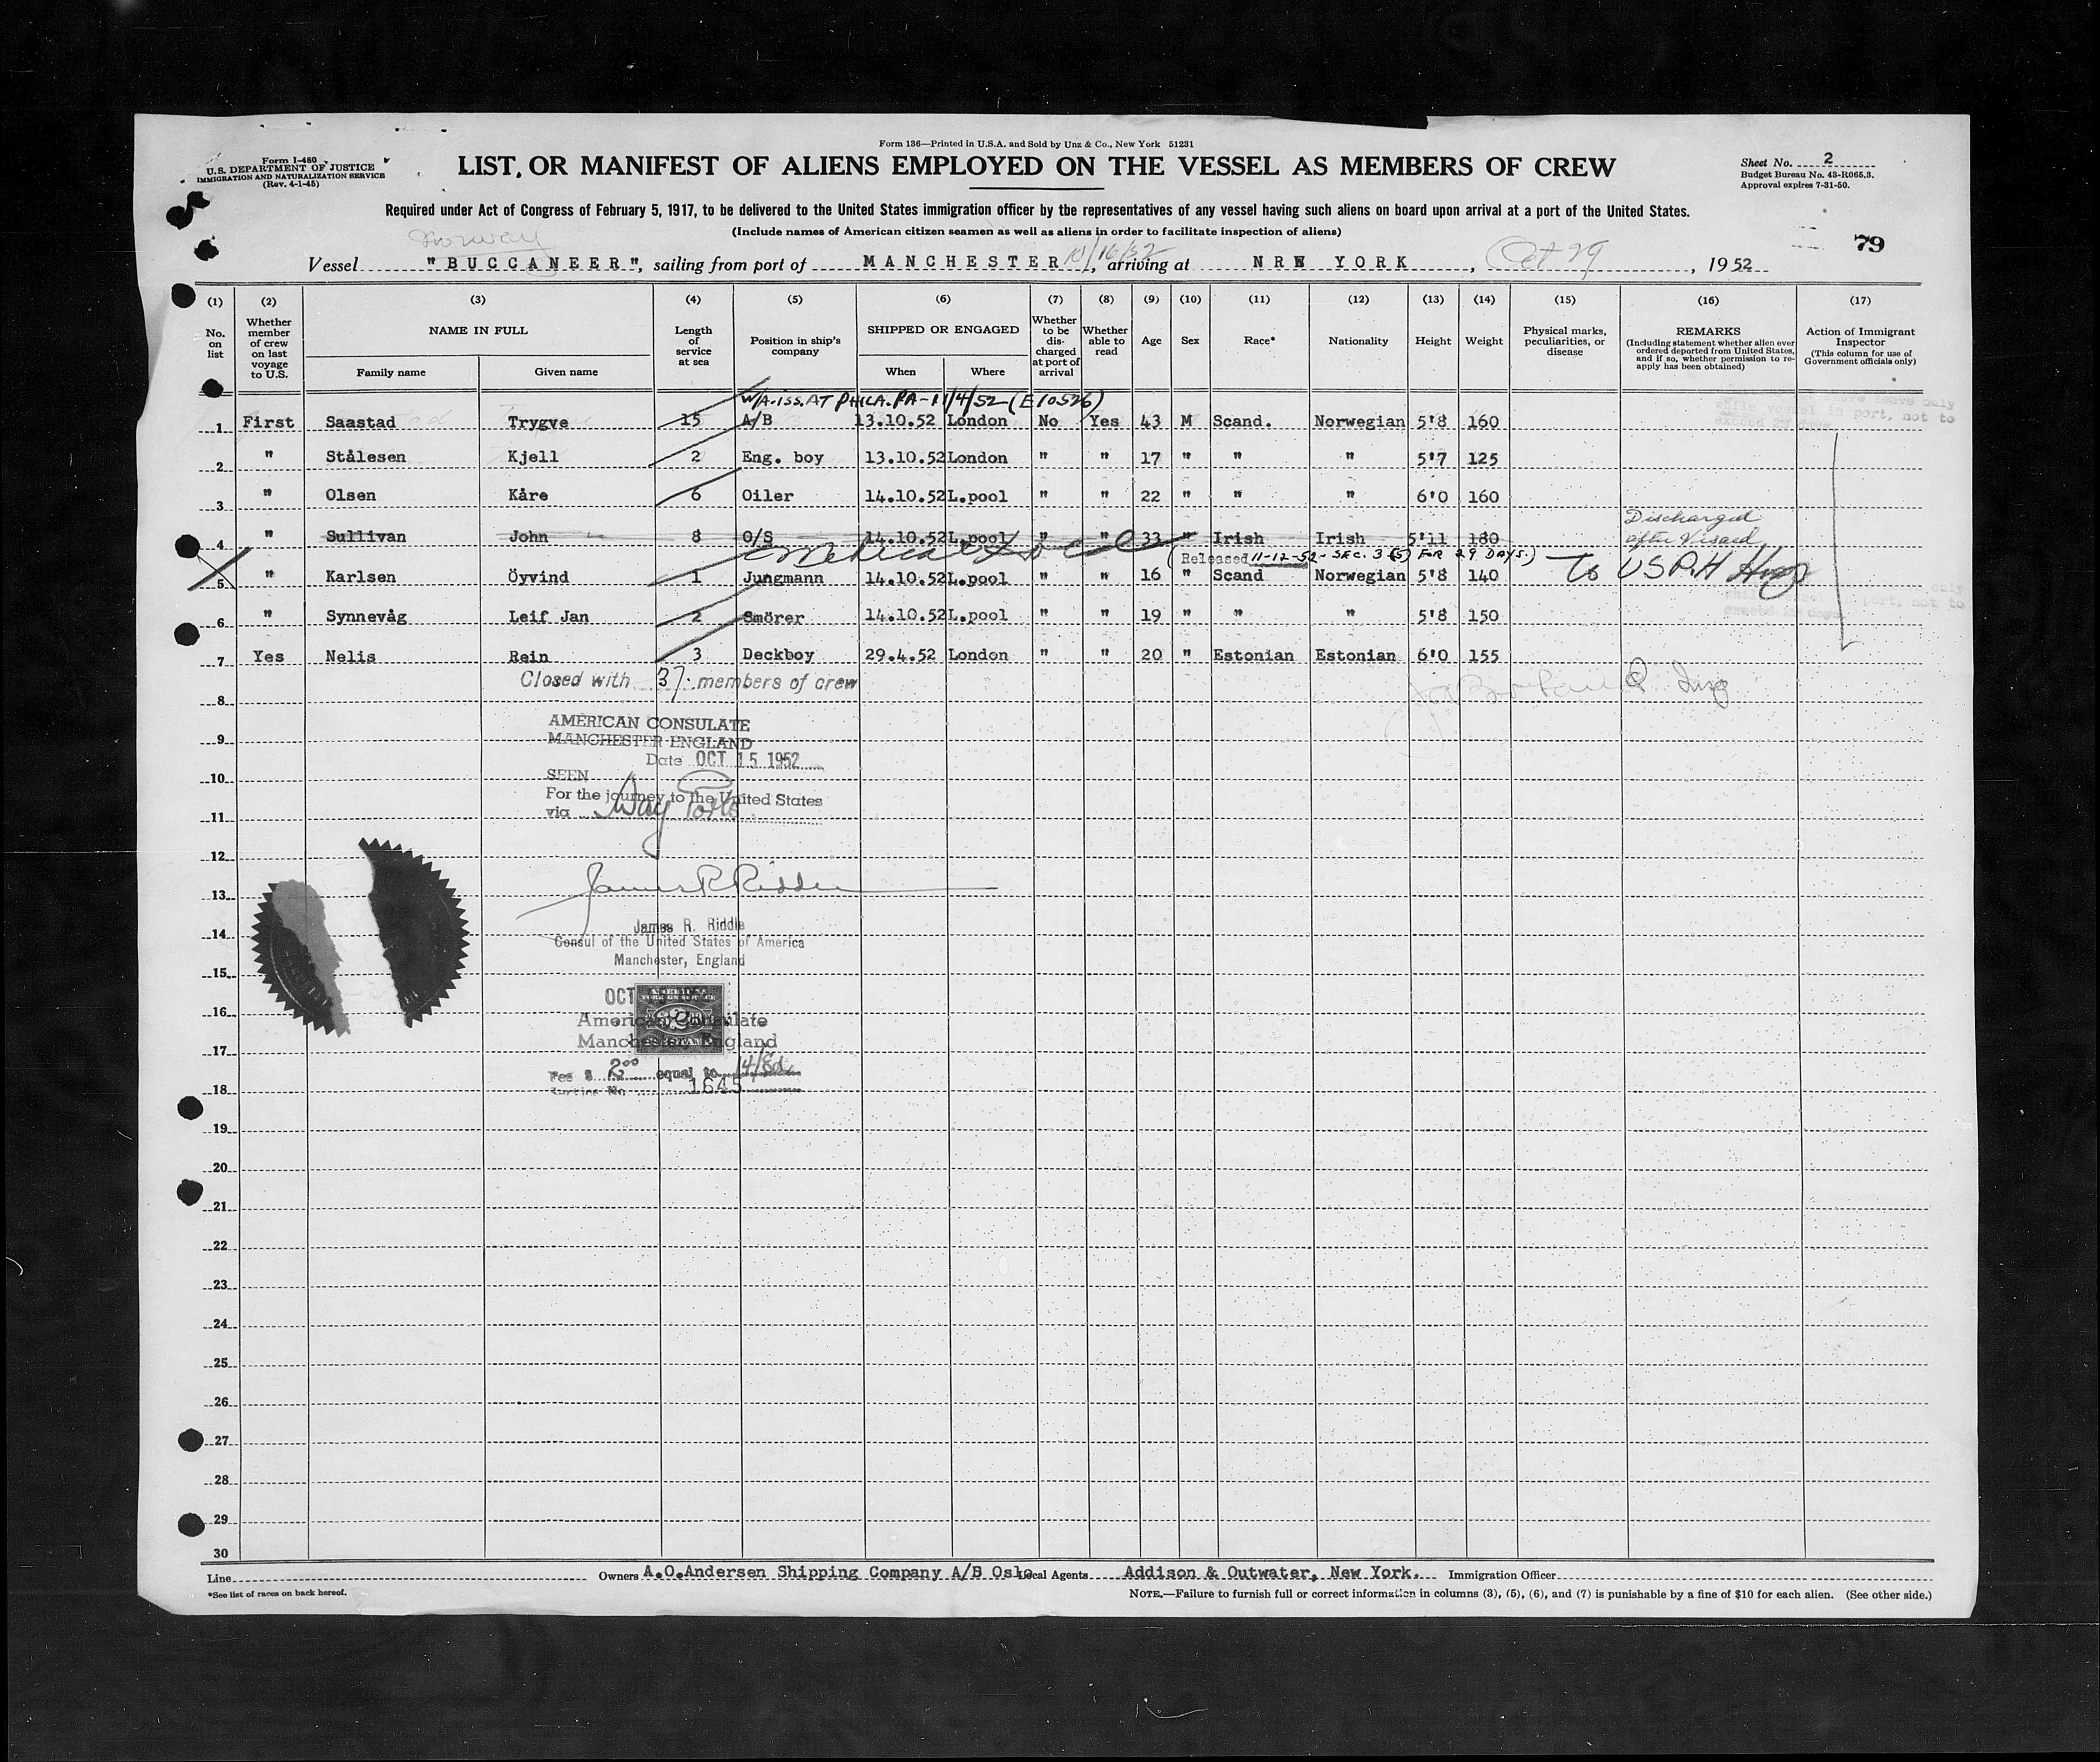 Form I-480
U.S. DEPARTMENT OF JUSTICE
IMMIGRATION AND NATURALIZATION SERVICE
(Rev. 4-1-45)
Form 136—Printed in U.S.A. and Sold by Unz & Co., New York 51231
LIST OR MANIFEST OF ALIENS EMPLOYED ON THE VESSEL AS MEMBERS OF CREW
Sheet No. 2
Budget Bureau No. 43-R065.3.
Approval expires 7-31-50.
Required under Act of Congress of February 5, 1917, to be delivered to the United States immigration officer by the representatives of any vessel having such aliens on board upon arrival at a port of the United States.
(Include names of American citizen seamen as well as aliens in order to facilitate inspection of aliens)
79
Norway
Vessel "BUCCANEER", sailing from port of MANCHESTER 10/16/52, arriving at NRW YORK, Oct 29, 1952
(1) (2) (3) (4) (5) (6) (7) (8) (9) (10) (11) (12) (13) (14) (15) (16) (17)
No. on list
Whether member of crew on last voyage to U.S.
NAME IN FULL
Family name
Given name
Length of service at sea
Position in ship's company
SHIPPED OR ENGAGED
When
Where
Whether to be discharged at port of arrival
Whether able to read
Age
Sex
Race*
Nationality
Height
Weight
Physical marks, peculiarities, or disease
REMARKS
(Including statement whether alien ever ordered deported from United States, and if so, whether permission to reapply has been obtained)
Action of Immigrant Inspector
(This column for use of Government officials only)
W/A-ISS. AT PHILA. PA-11/4/52-(E10526)
1 First Saastad Trygve 15 A/B 13.10.52 London No Yes 43 M Scand. Norwegian 5'8 160
while vessel in port, not to
2 " Stålesen Kjell 2 Eng. boy 13.10.52 London " " 17 " " " 5'7 125
3 " Olsen Kåre 6 Oiler 14.10.52 L.pool " " 22 " " " 6'0 160
4 " Sullivan John 8 O/S 14.10.52 L.pool " " 33 " Irish Irish 5'11 180 Discharged after Visaed
(Released 11-12-52- SEC. 3(5) FOR 29 DAYS.)
5 " Karlsen Öyvind 1 Jungmann 14.10.52 L.pool " " 16 " Scand Norwegian 5'8 140 To USPH Hosp
6 " Synnevåg Leif Jan 2 Smörer 14.10.52 L.pool " " 19 " " " 5'8 150
7 Yes Nelis Rein 3 Deckboy 29.4.52 London " " 20 " Estonian Estonian 6'0 155
Closed with 37 members of crew
8
AMERICAN CONSULATE
9
MANCHESTER ENGLAND
Date OCT 15 1952
10
SEEN
For the journey to the United States
11
via Way Ports
12
13
James R Riddle
14
James R. Riddle
Consul of the United States of America
Manchester, England
15
OCT
16
American Consulate
Manchester, England
17
Fee $ 2.00 equal to 14/8d
18
Service No 1645
19
20
21
22
23
24
25
26
27
28
29
30
Line Owners A.O.Andersen Shipping Company A/B Oslo Local Agents Addison & Outwater, New York. Immigration Officer
*See list of races on back hereof.
NOTE.—Failure to furnish full or correct information in columns (3), (5), (6), and (7) is punishable by a fine of $10 for each alien. (See other side.)